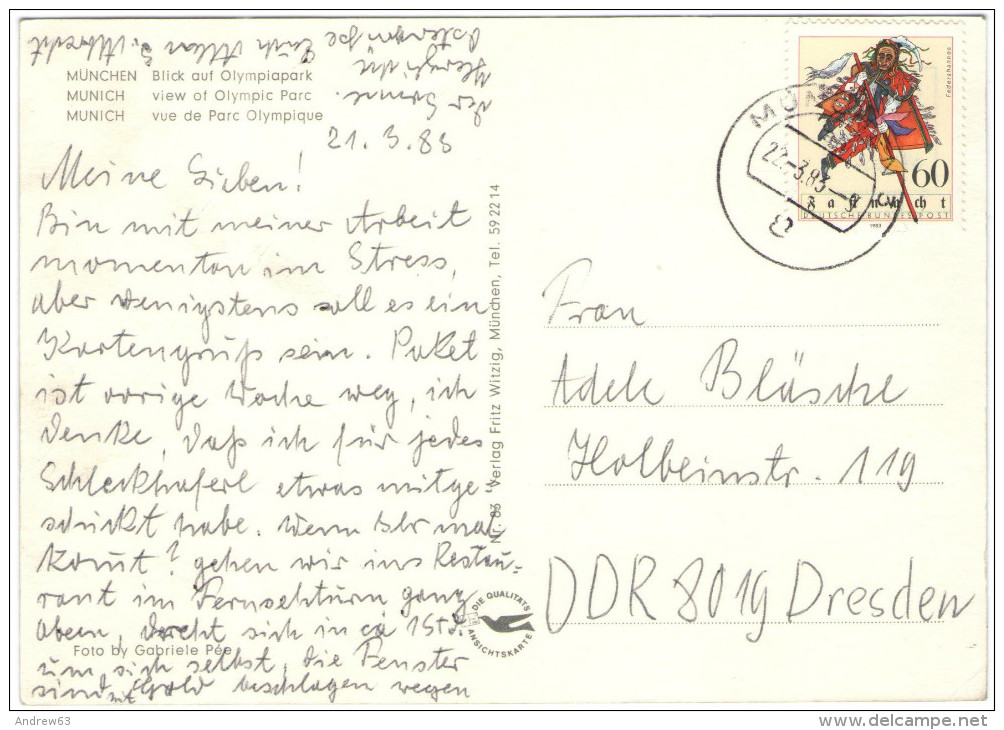 MÜNCHEN Blick auf Olympiapark
MUNICH view of Olympic Parc
MUNICH vue de Parc Olympique
21.3.83
Meine Lieben!
Bin mit meiner Arbeit
momentan im Stress,
aber wenigstens soll es ein
Kartengruß sein. Paket
ist vorige Woche weg, ich
denke, daß ich für jedes
Schleckhaferl etwas mitge
schickt habe. Wenn Ihr mal
komt? gehen wir ins Restau-
rant im Fernsehturm ganz
oben, dreht sich in ca 1 Std.
um sich selbst, die Fenster
sind mit Gold beschlagen wegen
der Sonne.
Herzliche
Ostergrüße Euch Allen
Foto by Gabriele Pée
Nr. 83 Verlag Fritz Witzig, München, Tel. 59 22 14
DIE QUALITÄTS
ANSICHTSKARTE
Federahannes
60
Fastnacht
DEUTSCHE BUNDESPOST
1983
22.-3.83-
Frau
Adele Bläsche
Holbeinstr. 119
DDR 8019 Dresden
Andrew63
www.delcampe.net